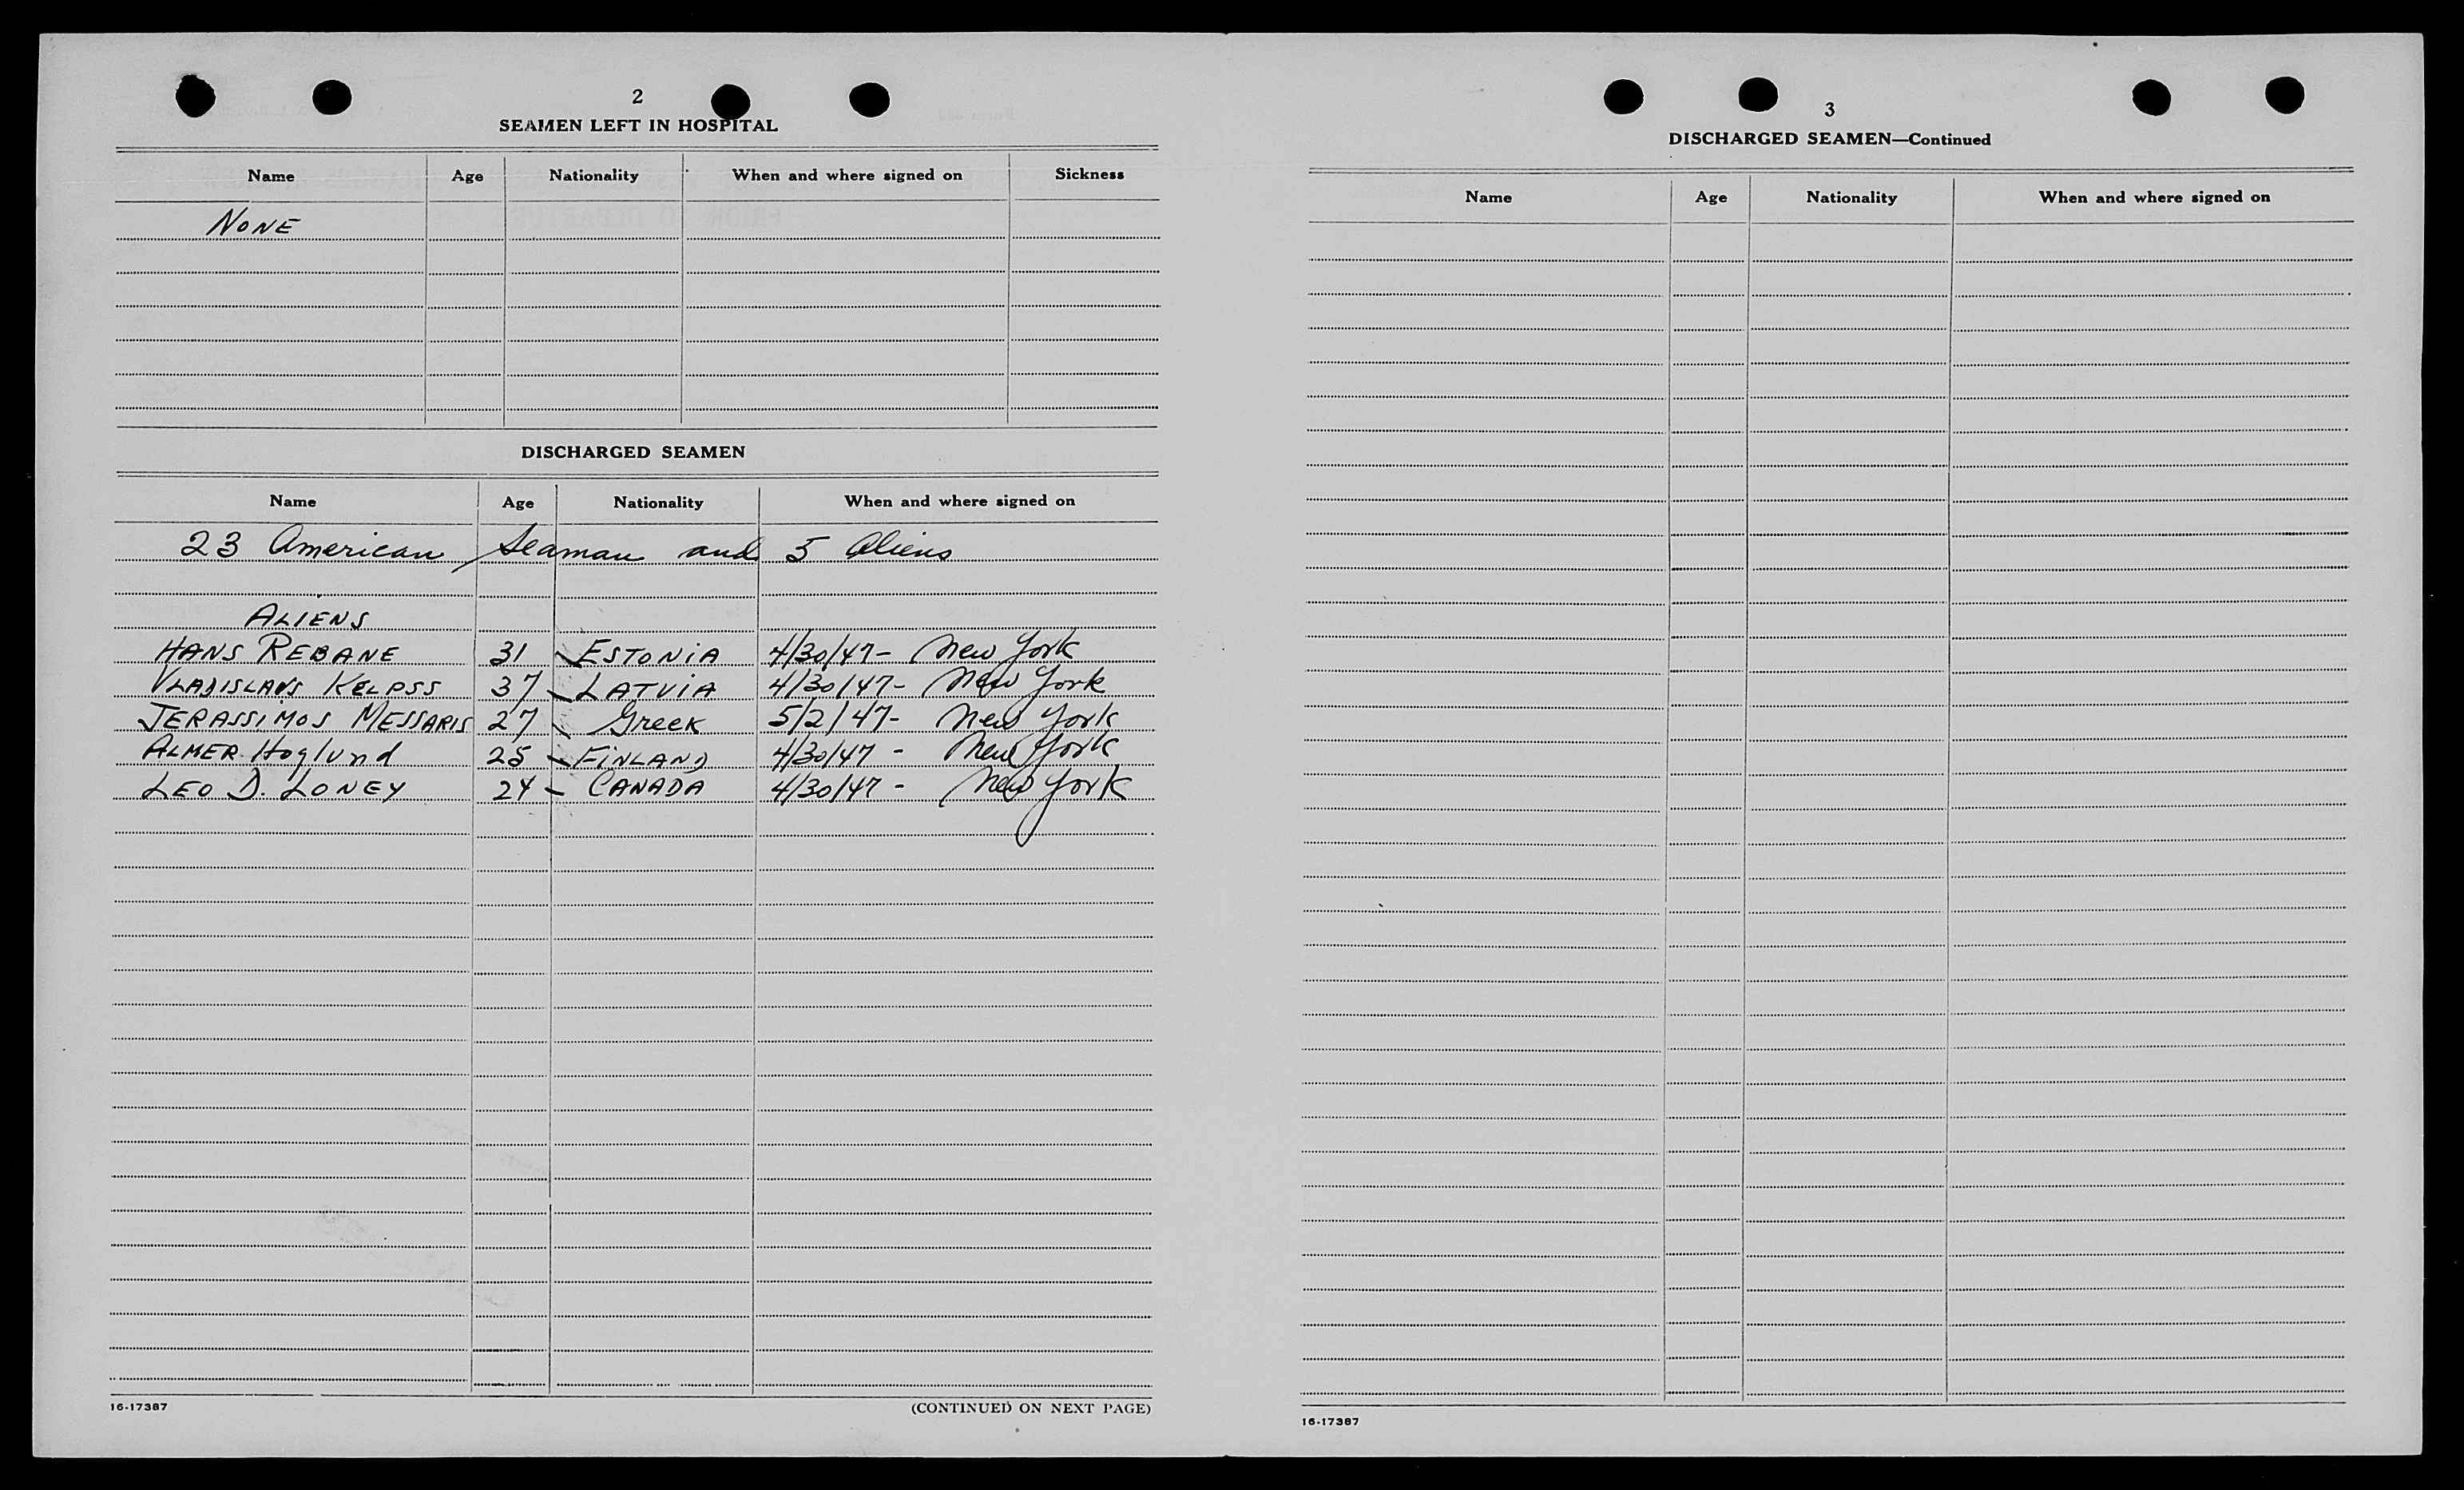 2
SEAMEN LEFT IN HOSPITAL
Name Age Nationality When and where signed on Sickness
NONE
DISCHARGED SEAMEN
Name Age Nationality When and where signed on
23 American Seaman and 5 Aliens
ALIENS
HANS REBANE 31 ESTONIA 4/30/47 - New York
VLADISLAVS KELPSS 37 LATVIA 4/30/47 - New York
JERASSIMOS MESSARIS 27 Greek 5/2/47 - New York
ALMER Hoglund 25 FINLAND 4/30/47 - New York
LEO D. LONEY 24 CANADA 4/30/47 - New York
16-17387 (CONTINUED ON NEXT PAGE)
3
DISCHARGED SEAMEN—Continued
Name Age Nationality When and where signed on
16-17387